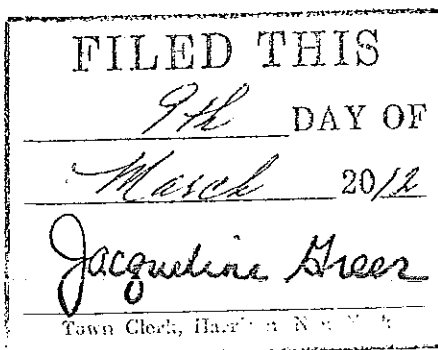 FILED THIS
9th DAY OF
March 2012
Jacqueline Greer
Town Clerk, Harrison New York